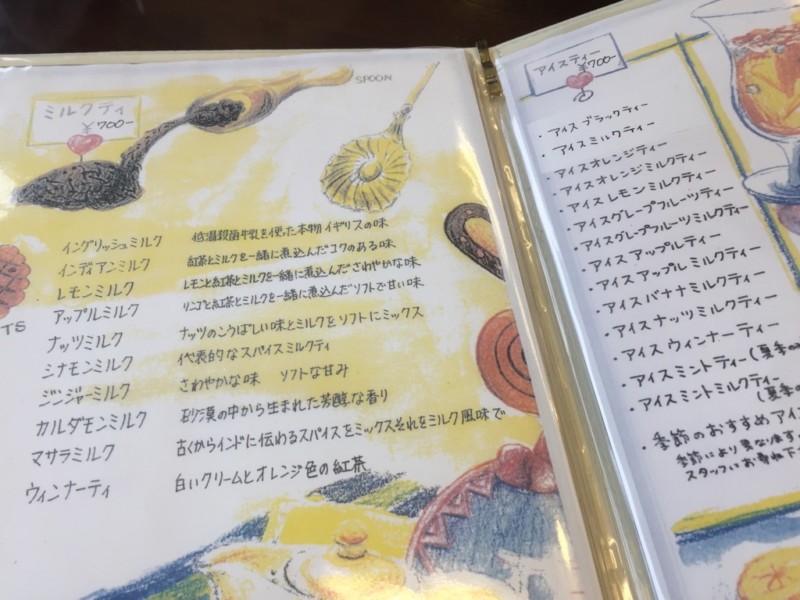 SPOON
ミルクティ
¥700-
イングリッシュミルク 低温殺菌牛乳を使った本物イギリスの味
インディアンミルク 紅茶とミルクを一緒に煮込んだコクのある味
レモンミルク レモンと紅茶とミルクを一緒に煮込んださわやかな味
アップルミルク リンゴと紅茶とミルクを一緒に煮込んだソフトで甘い味
ナッツミルク ナッツのこうばしい味とミルクをソフトにミックス
シナモンミルク 代表的なスパイスミルクティ
ジンジャーミルク さわやかな味 ソフトな甘み
カルダモンミルク 砂漠の中から生まれた芳醇な香り
マサラミルク 古くからインドに伝わるスパイスをミックスそれをミルク風味で
ウィンナーティ 白いクリームとオレンジ色の紅茶
TS
アイスティー
¥700-
・アイスブラックティー
・アイスミルクティー
・アイスオレンジティー
・アイスオレンジミルクティー
・アイスレモンミルクティー
・アイスグレープフルーツティー
・アイスグレープフルーツミルクティー
・アイスアップルティー
・アイスアップルミルクティー
・アイスバナナミルクティー
・アイスナッツミルクティー
・アイスウィンナーティー
・アイスミントティー(夏季の
・アイスミントミルクティー
(夏季の
・季節のおすすめアイ
季節により異なります
スタッフにお尋ね下